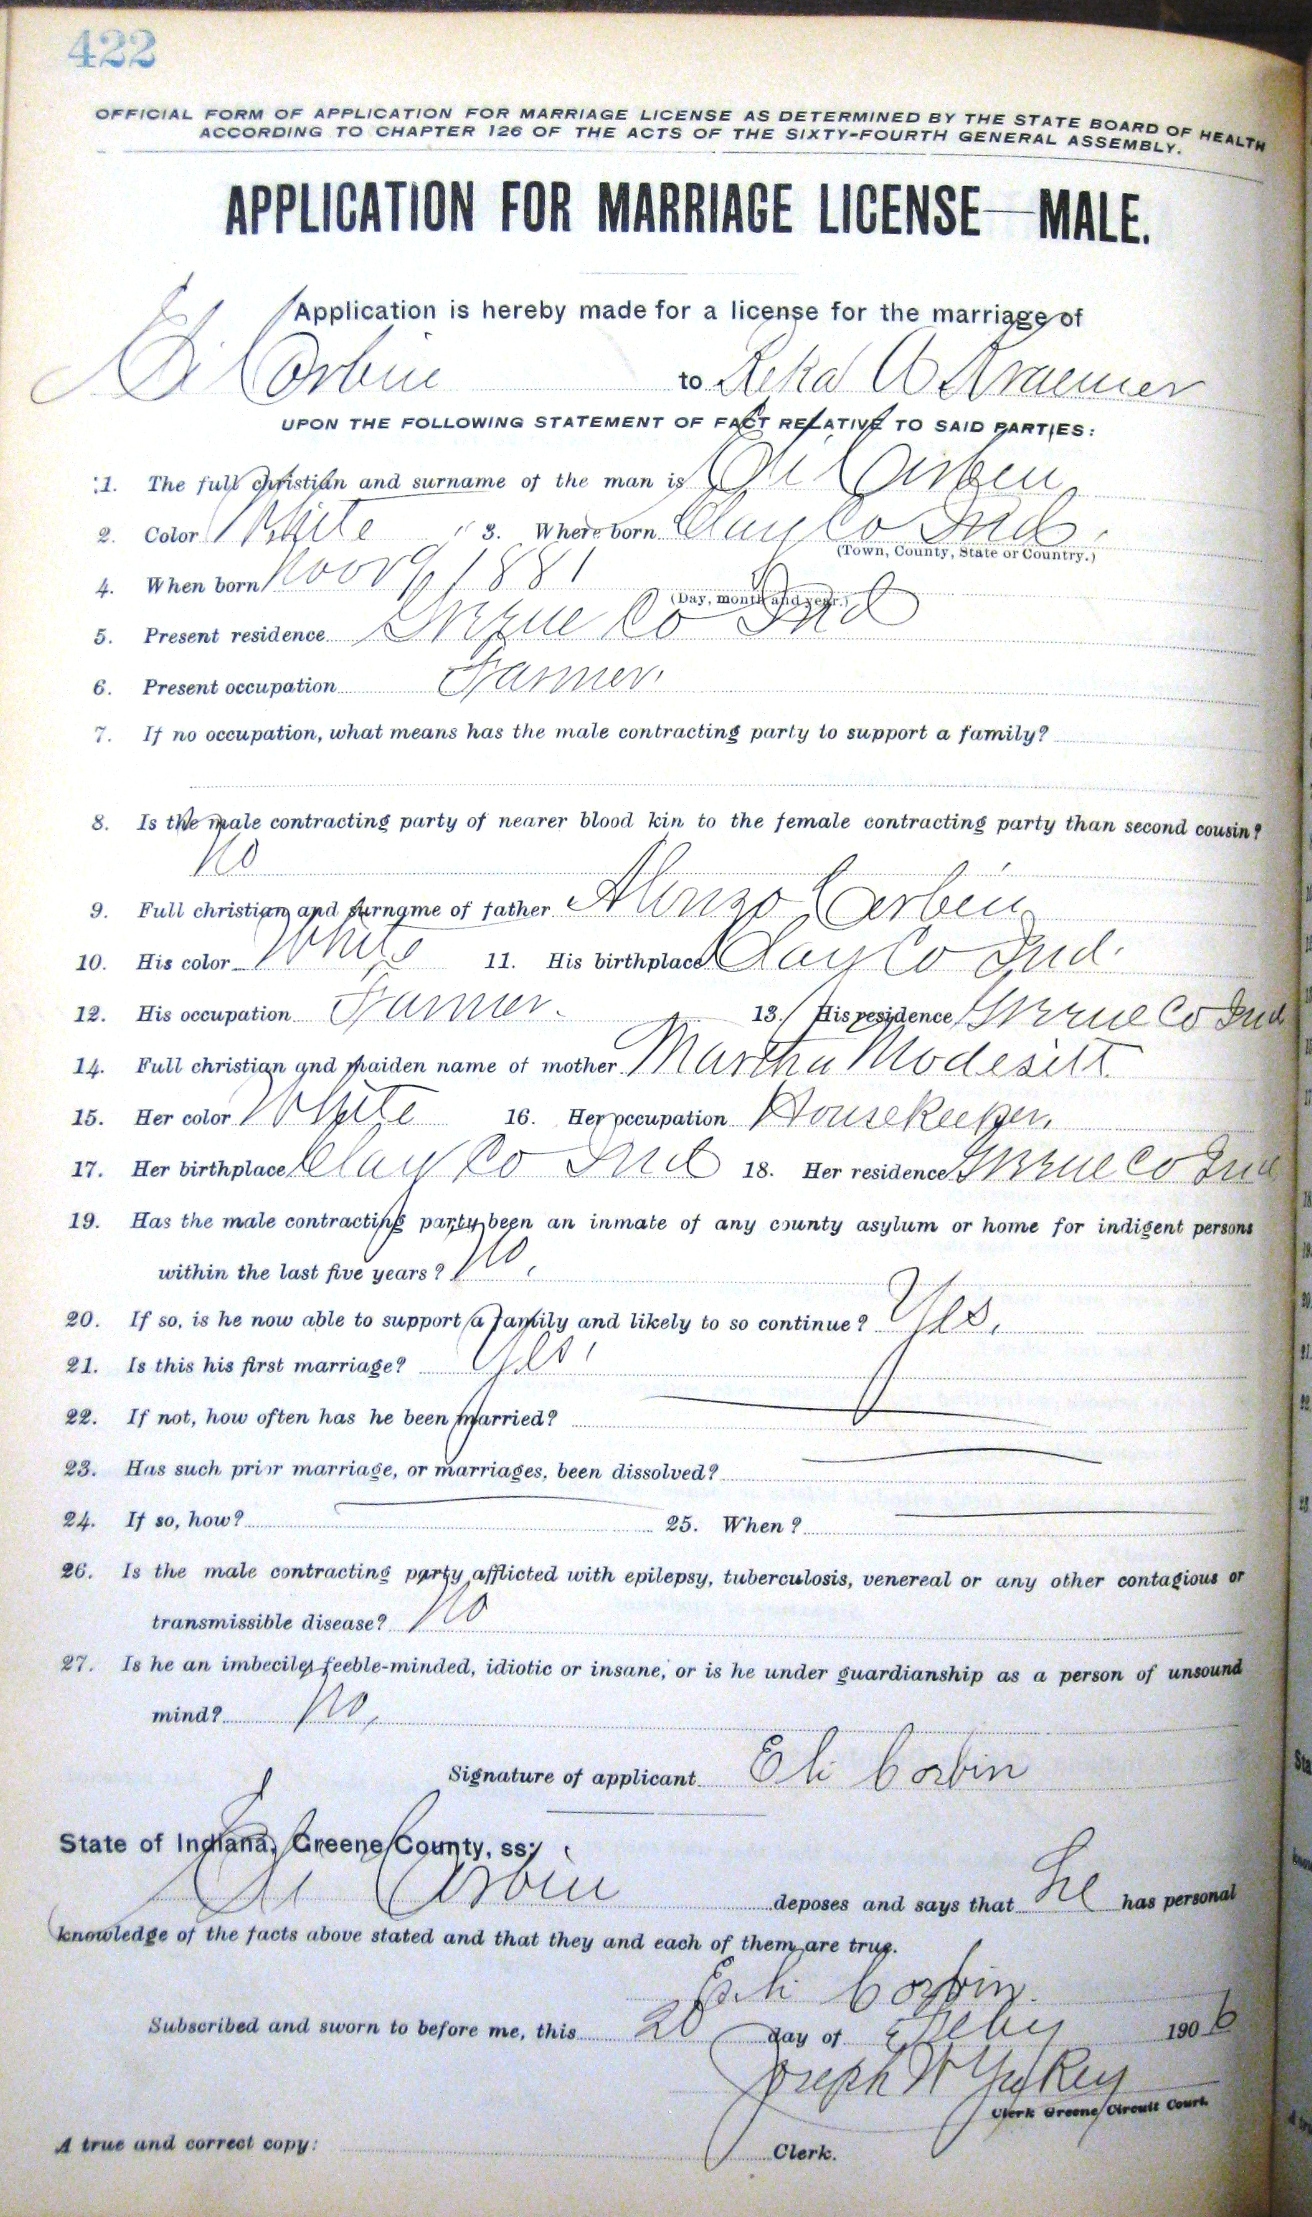 422
OFFICIAL FORM OF APPLICATION FOR MARRIAGE LICENSE AS DETERMINED BY THE STATE BOARD OF HEALTH
ACCORDING TO CHAPTER 126 OF THE ACTS OF THE SIXTY-FOURTH GENERAL ASSEMBLY.
APPLICATION FOR MARRIAGE LICENSE—MALE.
Application is hereby made for a license for the marriage of
Eli Corbin to Reka A Kraemer
UPON THE FOLLOWING STATEMENT OF FACT RELATIVE TO SAID PARTIES:
1. The full christian and surname of the man is Eli Corbin
2. Color White 3. Where born Clay Co Ind.
(Town, County, State or Country.)
4. When born Nov 9 1881
(Day, month and year.)
5. Present residence Greene Co Ind
6. Present occupation Farmer.
7. If no occupation, what means has the male contracting party to support a family?
8. Is the male contracting party of nearer blood kin to the female contracting party than second cousin?
No
9. Full christian and surname of father Alonzo Corbin
10. His color White 11. His birthplace Clay Co Ind.
12. His occupation Farmer. 13. His residence Greene Co Ind
14. Full christian and maiden name of mother Martha Modesitt
15. Her color White 16. Her occupation Housekeeper.
17. Her birthplace Clay Co Ind 18. Her residence Greene Co Ind
19. Has the male contracting party been an inmate of any county asylum or home for indigent persons
within the last five years? No.
20. If so, is he now able to support a family and likely to so continue? Yes.
21. Is this his first marriage? Yes.
22. If not, how often has he been married?
23. Has such prior marriage, or marriages, been dissolved?
24. If so, how? 25. When?
26. Is the male contracting party afflicted with epilepsy, tuberculosis, venereal or any other contagious or
transmissible disease? No
27. Is he an imbecile, feeble-minded, idiotic or insane, or is he under guardianship as a person of unsound
mind? No,
Signature of applicant Eli Corbin
State of Indiana, Greene County, ss:
Eli Corbin deposes and says that he has personal
knowledge of the facts above stated and that they and each of them are true.
Eli Corbin.
Subscribed and sworn to before me, this 20 day of Feby 1906
Joseph W Yakey
Clerk Greene Circuit Court.
A true and correct copy: Clerk.